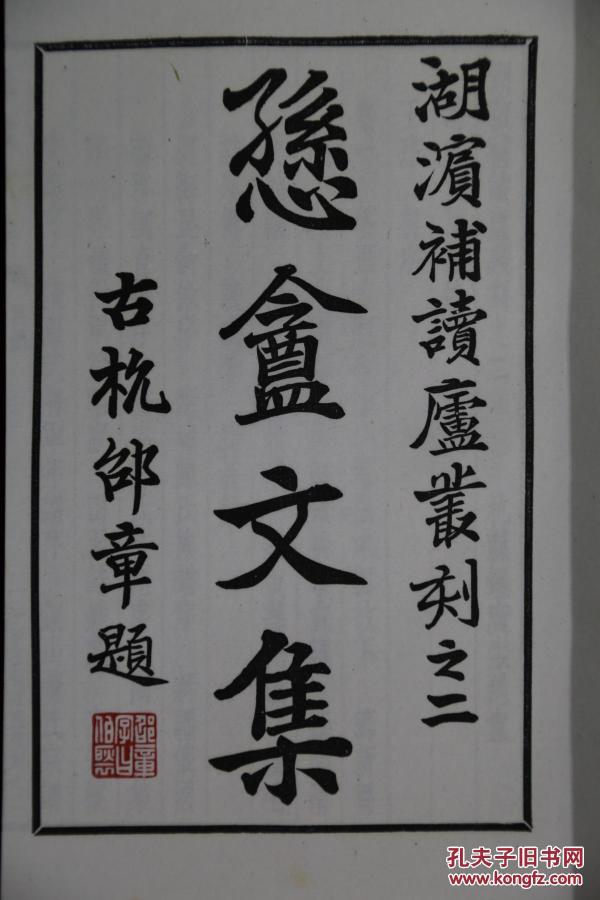 湖濱補讀廬叢刻之二
愻盦文集
古杭邵章題
邵章
字曰
伯
孔夫子旧书网
www.kongfz.com